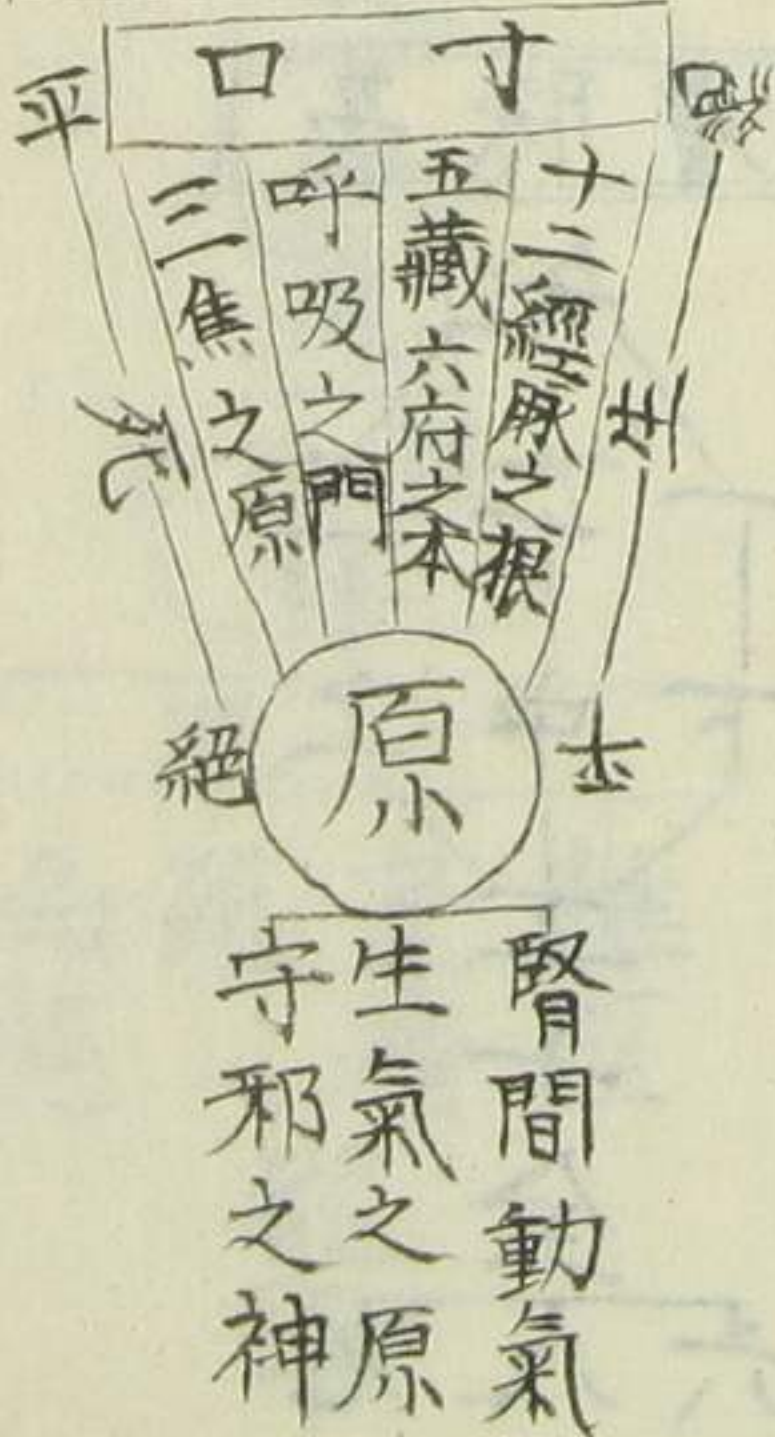 寸口
生
十二經脉之根
五藏六府之本
呼吸之門
三焦之原
平
死
絕
原
腎間動氣
生氣之原
守邪之神